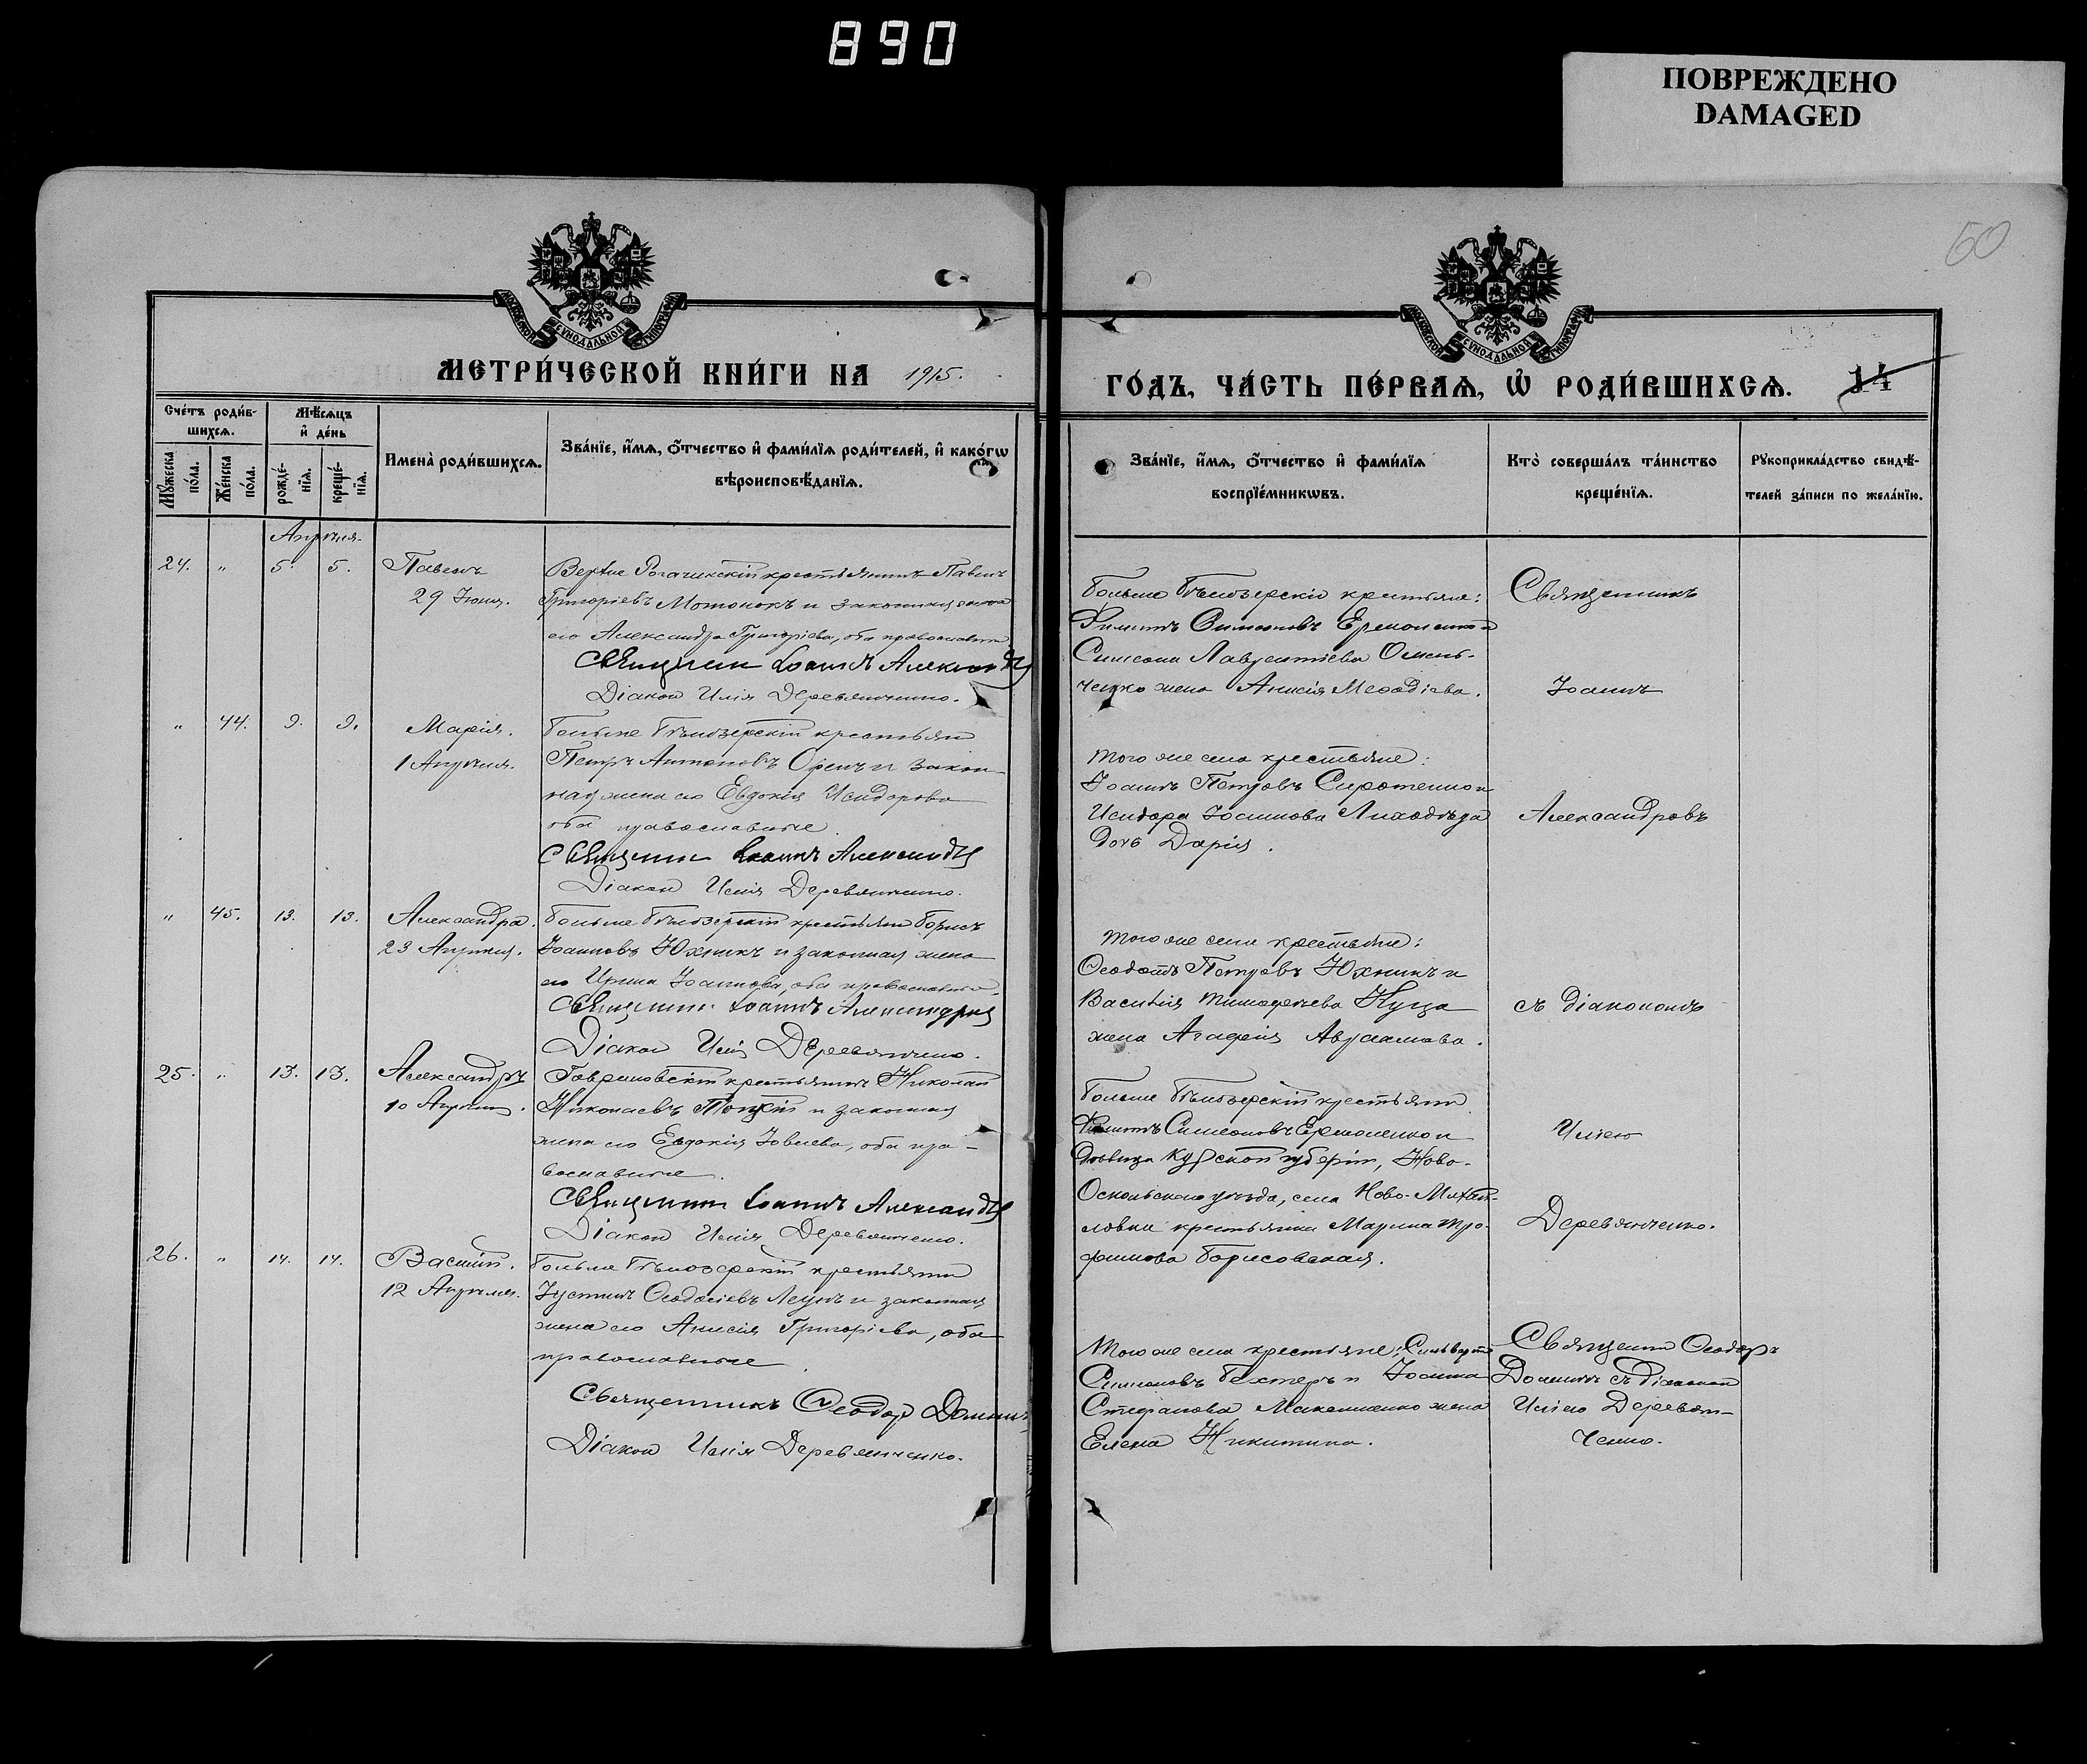 890
ПОВРЕЖДЕНО
DAMAGED
60
МОСКОВСКОЙ СѴНОДАЛЬНОЙ ТИПОГРАФІИ
МОСКОВСКОЙ СѴНОДАЛЬНОЙ ТИПОГРАФІИ
МЕТРИ́ЧЕСКОЙ КНИ́ГИ НА 1915.
ГО́ДЪ, ЧА́СТЬ ПЕ́РВАѦ, Ѡ҆ РОДИ́ВШИХСѦ. 14
Сче́тъ роди́в-
шихсѧ.
Мѣ́сѧцъ
и҆ де́нь
Мꙋ́жеска
по́ла.
Же́нска
по́ла.
рожде́-
нїѧ.
креще́-
нїѧ.
Имена̀ роди́вшихсѧ.
Зва́нїе, и҆́мѧ, ѻ҆́тчество и҆ фами́лїѧ роди́телей, и҆ како́гѡ
вѣроисповѣ́данїѧ.
Зва́нїе, и҆́мѧ, ѻ҆́тчество и҆ фами́лїѧ
воспрїе́мникѡвъ.
Кто̀ соверша́лъ та́инство
креще́нїѧ.
Рꙋкоприкла́дство свидѣ́-
телей за́писи по жела́нїю.
Апрѣля
24. " 5. 5. Павелъ
29 Іюня.
Верхне Рогачикскій крестьянинъ Павелъ
Григоріевъ Мотонокъ и законная жена
его Александра Григоріева, оба православные
Священникъ Іоаннъ Александровъ
Діаконъ Илія Деревянченко.
Больше Бѣлозерскіе крестьяне:
Филиппъ Симеоновъ Ермоленко и
Симеона Лаврентіева Омель-
ченко жена Анисія Меѳодіева.
Священникъ
Іоаннъ
" 44. 9. 9. Марія.
1 Апрѣля.
Больше Бѣлозерскій крестьянинъ
Петръ Антоновъ Орелъ и закон-
ная жена его Евдокія Исидорова
оба православные.
Священникъ Іоаннъ Александровъ
Діаконъ Илія Деревянченко.
Того же села крестьяне:
Іоаннъ Петровъ Сиротенко и
Исидора Іоаннова Лиходѣда
дочь Дарія.
Александровъ
" 45. 13. 13. Александра.
23 Апрѣля.
Больше Бѣлозерскій крестьянинъ Борисъ
Іоанновъ Юхникъ и законная жена
его Ирина Іоаннова, оба православные.
Священникъ Іоаннъ Александровъ
Діаконъ Илія Деревянченко.
Того же села крестьяне:
Ѳеодотъ Петровъ Юхникъ и
Василія Тимофеева Куца
жена Агафія Авраамова.
съ діакономъ
25. " 13. 13. Александръ
10 Апрѣля.
Гавриловскій крестьянинъ Николай
Николаевъ и законная
жена его Евдокія Іовлева, оба пра-
вославные.
Священникъ Іоаннъ Александровъ
Діаконъ Илія Деревянченко.
Больше Бѣлозерскій крестьянинъ
Филиппъ Симеоновъ Ермоленко и
дѣвица Курской губерніи, Ново-
Оскольскаго уѣзда, села Ново-Михай-
ловки крестьянка Марина Тро-
фимова Борисовская.
Иліею
Деревянченко.
26. " 14. 14. Василій.
12 Апрѣля.
Больше Бѣлозерскій крестьянинъ
Іустинъ Ѳеодосіевъ и законная
жена его Анисія Григоріева, оба
православные.
Священникъ Ѳеодоръ
Діаконъ Илія Деревянченко.
Того же села крестьяне: Сильвестръ
Симеоновъ Бехтеръ и Іоанна
Стефанова Макаленко жена
Елена Никитина.
Священникъ Ѳеодоръ
съ діакономъ
Иліею Деревян-
ченко.